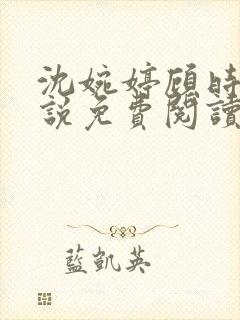 沈婉婷顾时
說免費閱讀
藍凱英